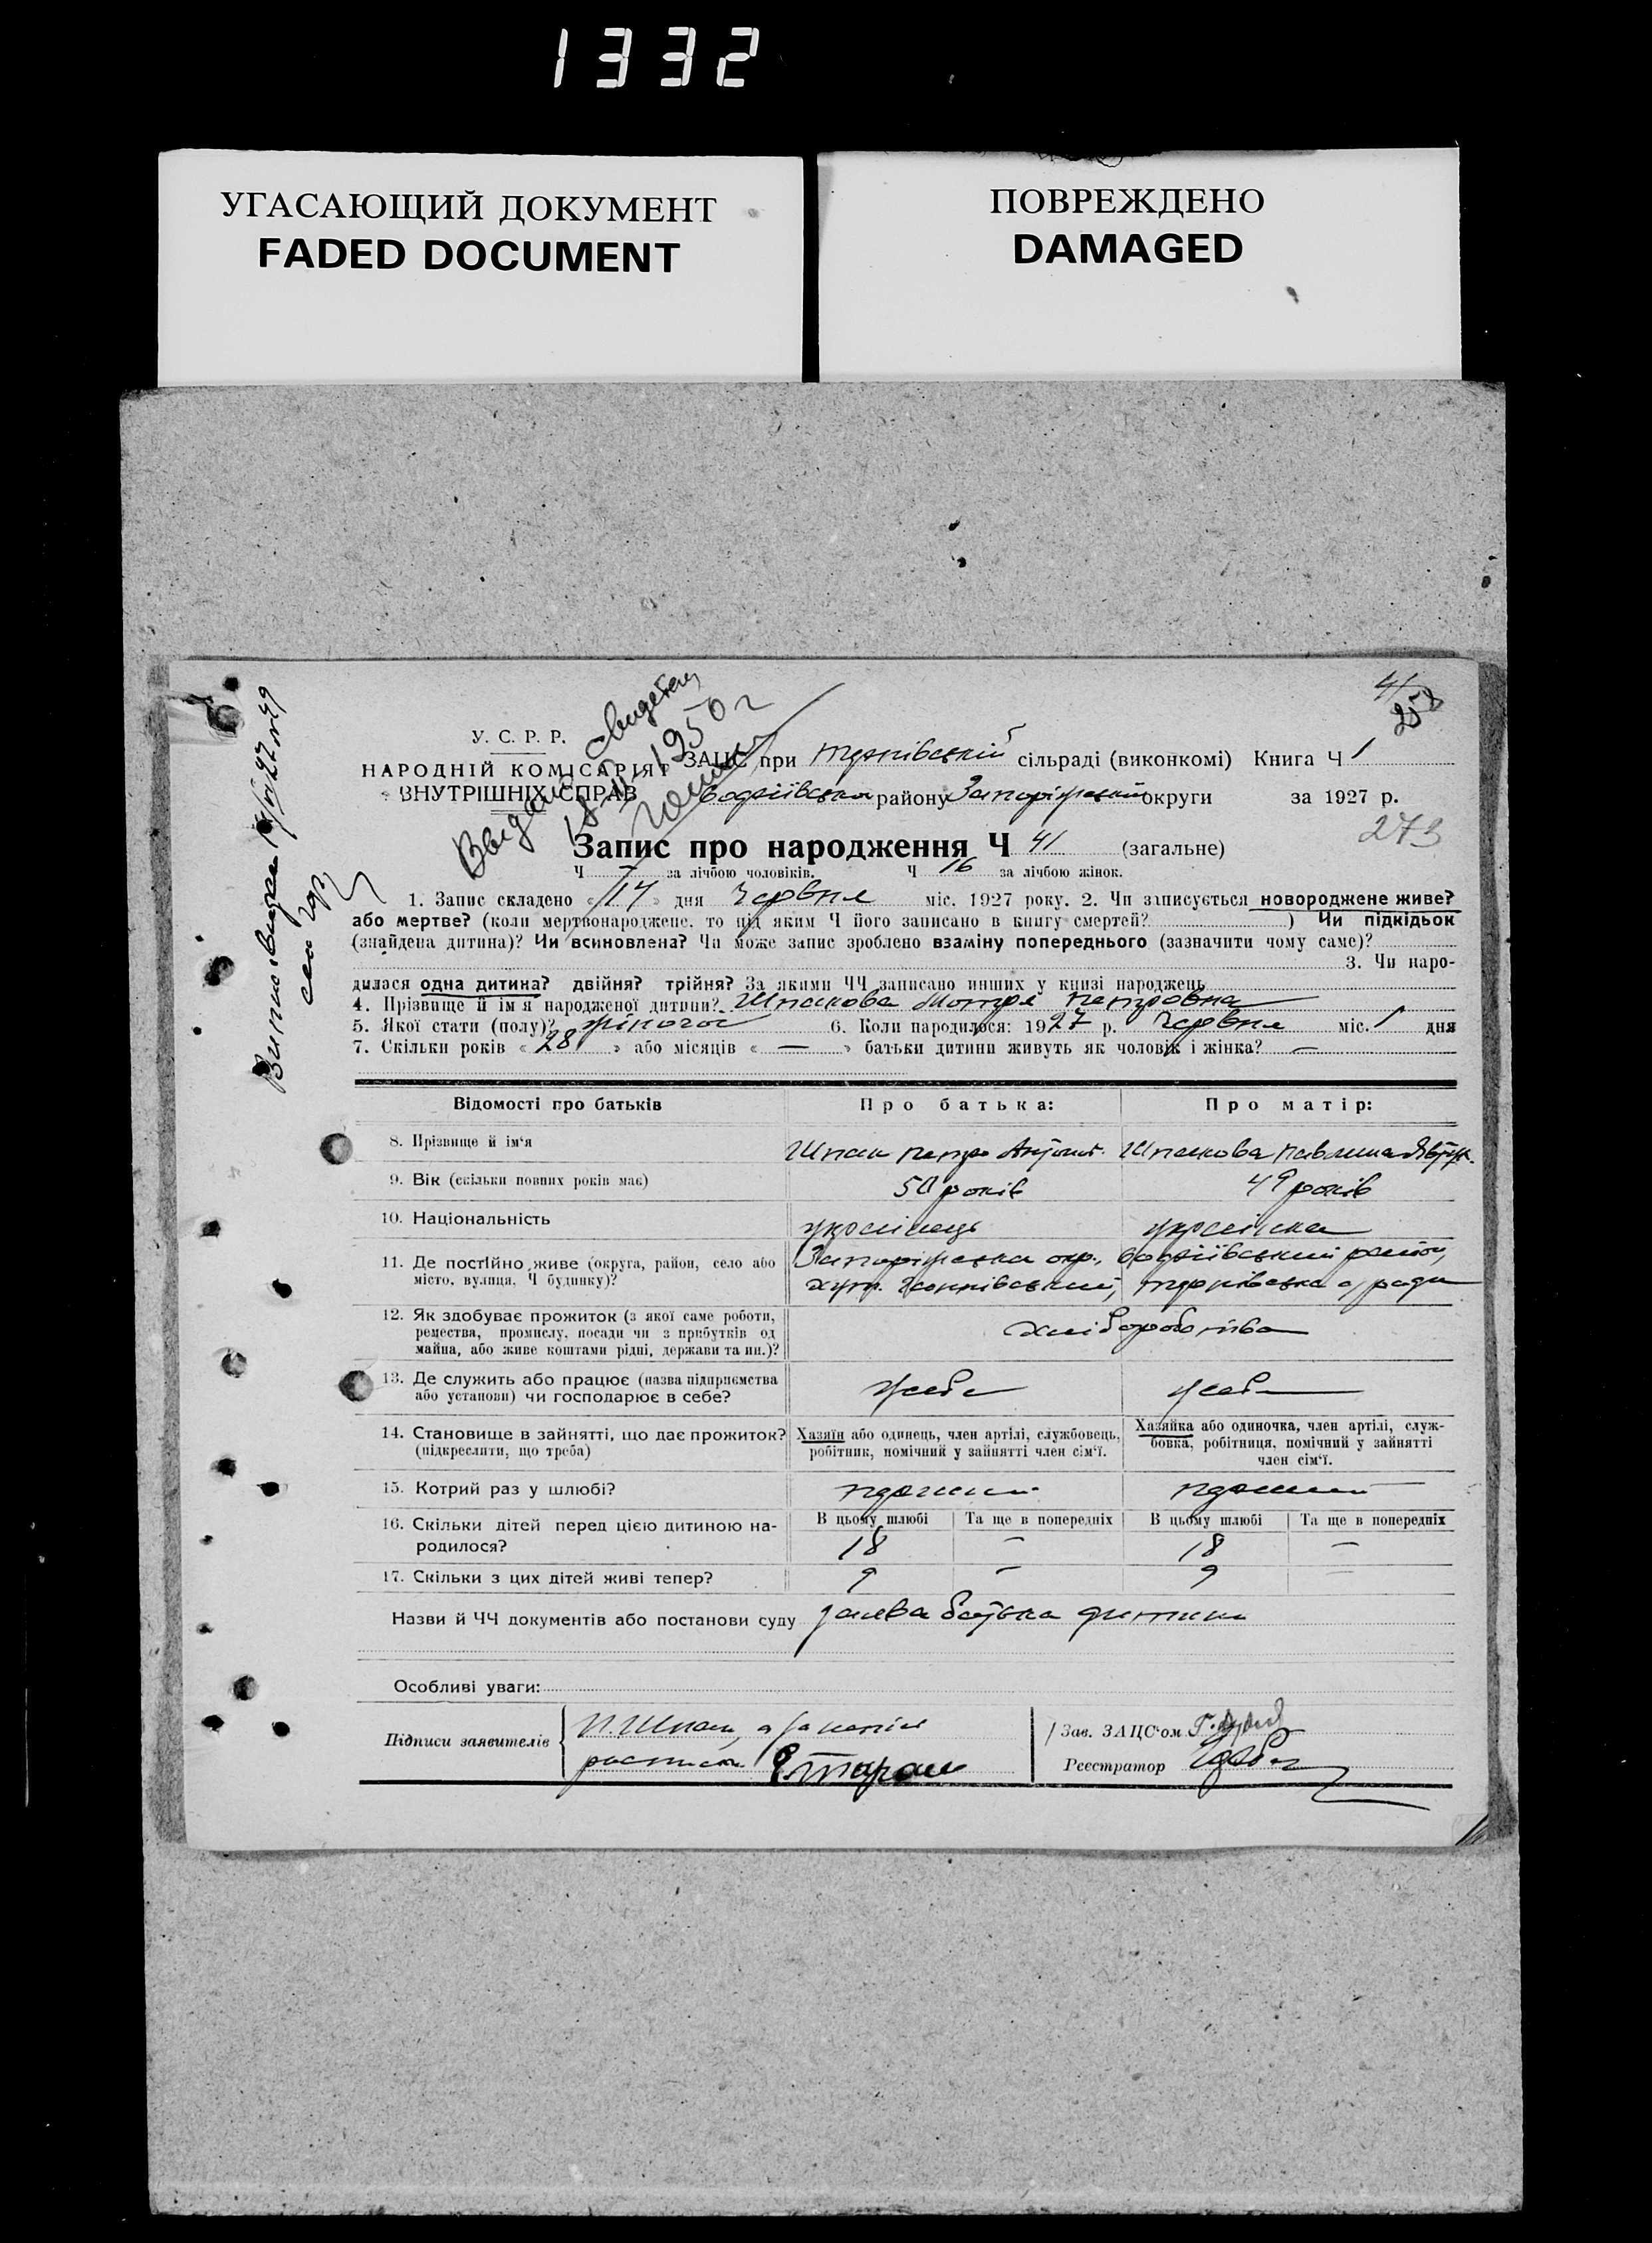 1332
УГАСАЮЩИЙ ДОКУМЕНТ
FADED DOCUMENT
ПОВРЕЖДЕНО
DAMAGED
41
У. С. Р. Р.
НАРОДНІЙ КОМІСАРІЯТ
ВНУТРІШНІХ СПРАВ
Выдано
1950 г
ЗАЦС при сільраді (виконкомі) Книга Ч 1
району Запоріжської округи за 1927 р.
273
Запис про народження Ч 41 (загальне)
Ч за лічбою чоловіків. Ч 16 за лічбою жінок.
1. Запис складено « 14 » дня Червня міс. 1927 року. 2. Чи записується новороджене живе?
або мертве? (коли мертвонароджене, то під яким Ч його записано в книгу смертей? ) Чи підкідьок
(знайдена дитина)? Чи всиновлена? Чи може запис зроблено взаміну попереднього (зазначити чому саме)?
3. Чи наро-
дилася одна дитина? двійня? трійня? За якими ЧЧ записано инших у книзі народжень
4. Прізвище й ім'я народженої дитини? Шпакова Мотря Петровна
5. Якої статі (полу)? жіночої 6. Коли народилося: 1927 р. Червня міс. 1 дня
7. Скільки років « 28 » або місяців « — » батьки дитини живуть як чоловік і жінка? —
Відомості про батьків Про батька: Про матір:
8. Прізвище й ім'я Шпак Петро Шпакова Павлина
9. Вік (скільки повних років має) 50 років 49 років
10. Національність українець українка
11. Де постійно живе (округа, район, село або
місто, вулиця, Ч будинку)?
Запоріжська окр., район,
хут. с/ради
12. Як здобуває прожиток (з якої саме роботи,
ремества, промислу, посади чи з прибутків од
майна, або живе коштами рідні, держави та ин.)?
хліборобства
13. Де служить або працює (назва підприємства
або установи) чи господарює в себе?
у себе у себе
14. Становище в зайнятті, що дає прожиток?
(підкреслити, що треба)
Хазяїн або одинець, член артілі, службовець,
робітник, помічний у зайнятті член сім'ї.
Хазяйка або одиночка, член артілі, служ-
бовка, робітниця, помічний у зайнятті
член сім'ї.
15. Котрий раз у шлюбі?
16. Скільки дітей перед цією дитиною на-
родилося?
В цьому шлюбі Та ще в попередніх В цьому шлюбі Та ще в попередніх
18 — 18 —
17. Скільки з цих дітей живі тепер? 9 — 9 —
Назви й ЧЧ документів або постанови суду заява батька дитини
Особливі уваги:
Підписи заявителів
П. Шпак, а
Зав. ЗАЦС'ом
Реєстратор